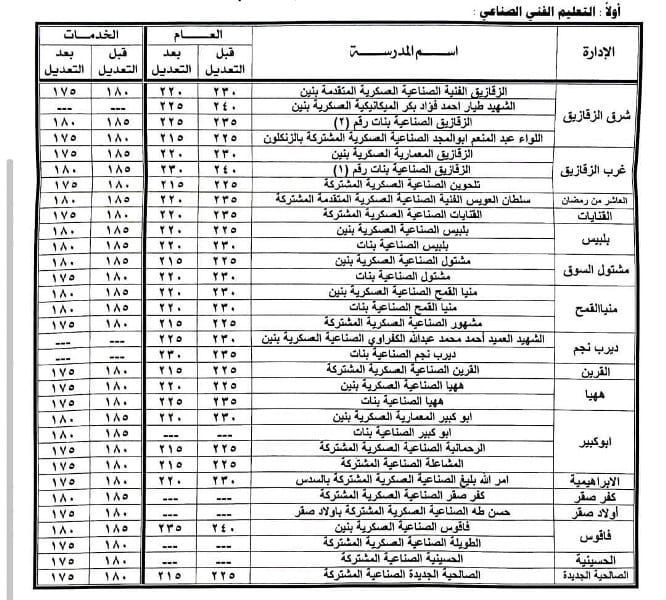 أولاً : التعليم الفني الصناعي :
الإدارة اسم المدرسة العام الخدمات
قبل التعديل بعد التعديل قبل التعديل بعد التعديل
شرق الزقازيق الزقازيق الفنية الصناعية العسكرية المتقدمة بنين ٢٣٠ ٢٢٠ ١٨٠ ١٧٥
الشهيد طيار احمد فؤاد بكر الميكانيكية العسكرية بنين ٢٤٠ ٢٢٥ --- ---
الزقازيق الصناعية بنات رقم (٢) ٢٣٥ ٢٢٥ ١٨٥ ١٨٠
اللواء عبد المنعم ابوالمجد الصناعية العسكرية المشتركة بالزنكلون ٢٢٥ ٢١٥ ١٨٥ ١٧٥
غرب الزقازيق الزقازيق المعمارية العسكرية بنين ٢٣٠ ٢٢٠ ١٨٥ ١٧٥
الزقازيق الصناعية بنات رقم (١) ٢٤٠ ٢٣٠ ١٨٥ ١٨٠
تلحوين الصناعية العسكرية المشتركة ٢٢٥ ٢١٥ ١٨٠ ١٧٥
العاشر من رمضان سلطان العويس الفنية الصناعية العسكرية المتقدمة المشتركة ٢٣٥ ٢٢٠ ١٨٥ ١٨٠
القنايات القنايات الصناعية العسكرية المشتركة ٢٣٥ ٢٢٠ ١٨٠ ١٧٥
بلبيس بلبيس الصناعية العسكرية بنين ٢٢٥ ٢٢٠ ١٨٥ ١٨٠
بلبيس الصناعية بنات ٢٣٠ ٢٢٠ ١٨٥ ١٨٠
مشتول السوق مشتول الصناعية العسكرية بنين ٢٢٥ ٢١٥ ١٨٥ ١٨٠
مشتول الصناعية بنات ٢٣٠ ٢٢٠ ١٨٠ ١٧٥
منياالقمح منيا القمح الصناعية العسكرية بنين ٢٣٠ ٢٢٠ ١٨٥ ١٨٠
منيا القمح الصناعية بنات ٢٣٠ ٢٢٠ ١٨٥ ١٨٠
مشهور الصناعية العسكرية المشتركة ٢٢٥ ٢١٥ ١٨٠ ١٧٥
ديرب نجم الشهيد العميد أحمد محمد عبدالله الكفراوي الصناعية العسكرية بنين ٢٣٠ ٢٢٥ --- ---
ديرب نجم الصناعية بنات ٢٣٥ ٢٣٠ --- ---
القرين القرين الصناعية العسكرية المشتركة ٢٢٥ ٢١٥ ١٨٠ ١٧٥
ههيا ههيا الصناعية العسكرية بنين ٢٢٥ ٢٢٠ ١٨٠ ١٧٥
ههيا الصناعية بنات ٢٣٥ ٢٢٥ ١٨٠ ١٧٥
ابوكبير ابو كبير المعمارية العسكرية بنين ٢٣٠ ٢٢٠ ١٨٥ ١٨٠
ابو كبير الصناعية بنات --- --- ١٨٥ ١٨٠
الرحمانية الصناعية العسكرية المشتركة ٢٢٥ ٢١٥ ١٨٠ ١٧٥
المشاعلة الصناعية المشتركة ٢٢٥ ٢١٥ ١٨٠ ١٧٥
الابراهيمية امر الله بليغ الصناعية العسكرية المشتركة بالسدس ٢٣٠ ٢٢٠ ١٨٠ ١٧٥
كفر صقر كفر صقر الصناعية العسكرية المشتركة --- --- ١٨٥ ١٨٠
أولاد صقر حسن طه الصناعية العسكرية المشتركة باولاد صقر --- --- ١٨٠ ١٧٥
فاقوس فاقوس الصناعية العسكرية بنين ٢٤٠ ٢٣٥ ١٨٥ ١٨٠
الطويلة الصناعية العسكرية المشتركة --- --- ١٨٠ ١٧٥
الحسينية الحسينية الصناعية العسكرية المشتركة --- --- ١٨٠ ١٧٥
الصالحية الجديدة الصالحية الجديدة الصناعية المشتركة ٢٢٥ ٢١٥ ١٨٠ ١٧٥